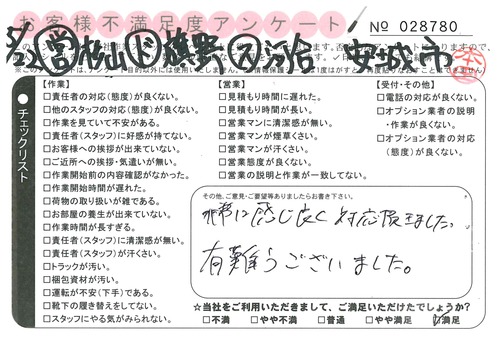 お客様不満足度アンケート
No 028780
5/23 営松山 ド磯野 ス河合 安城市
チェックリスト
【作業】
□責任者の対応(態度)が良くない。
□他のスタッフの対応(態度)が良くない。
□作業を見ていて不安がある。
□責任者(スタッフ)に好感が持てない。
□お客様への挨拶が出来ていない。
□ご近所への挨拶・気遣いが無い。
□作業開始前の内容確認がなかった。
□作業開始時間が遅れた。
□荷物の取り扱いが雑である。
□お部屋の養生が出来ていない。
□作業時間が長すぎる。
□責任者(スタッフ)に清潔感が無い。
□責任者(スタッフ)が汗くさい。
□トラックが汚い。
□梱包資材が汚い。
□運転が不安(下手)である。
□靴下の履き替えをしてない。
□スタッフにやる気がみられない。
【営業】
□見積もり時間に遅れた。
□見積もり時間が長い。
□営業マンに清潔感が無い。
□営業マンが煙草くさい。
□営業マンが汗くさい。
□営業態度が良くない。
□営業の説明と作業が一致してない。
【受付・その他】
□電話の対応が良くない。
□オプション業者の説明
・作業が良くない。
□オプション業者の対応
(態度)が良くない。
その他、ご意見・ご要望等ありましたらお書き下さい。
非常に感じ良く対応頂きました。
有難うございました。
☆当社をご利用いただきまして、ご満足いただけたでしょうか?
□不満 □やや不満 □普通 □やや満足 ☑満足